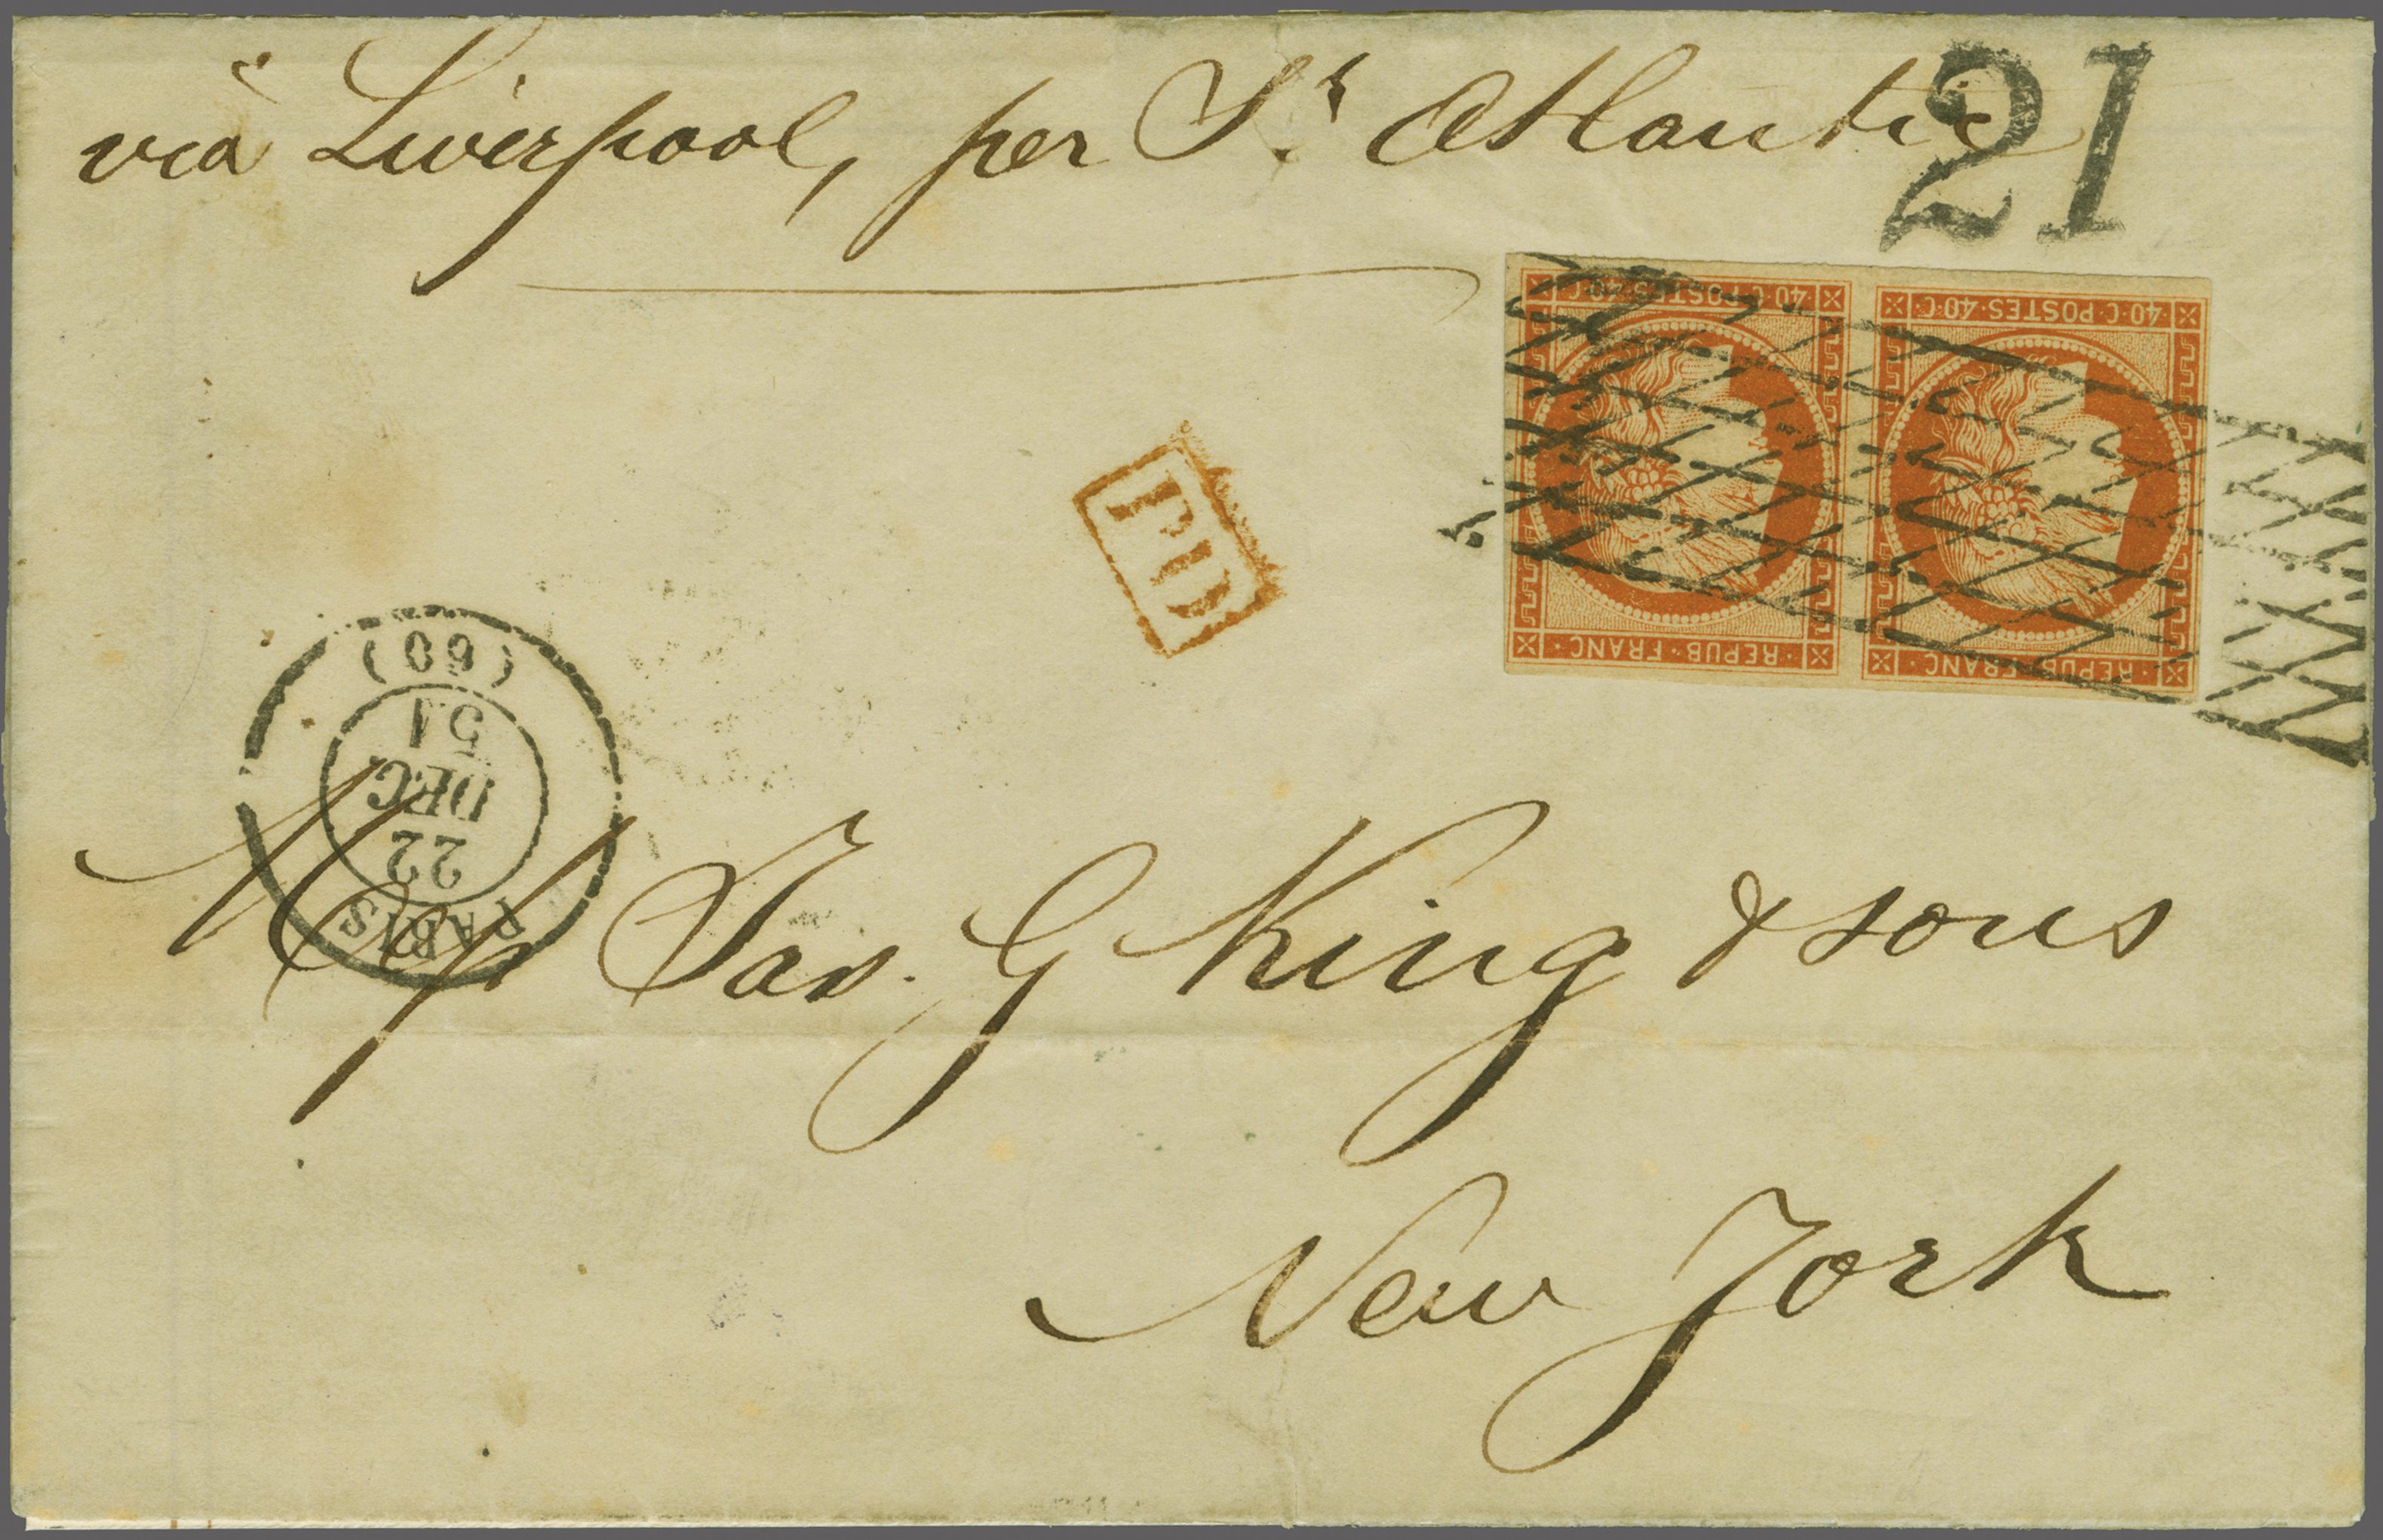 via Liverpool, per Sr Atlantic
21
40·C·POSTES·40·C
40·C·POSTES·40·C
REPUB·FRANC·
REPUB·FRANC·
PD
(60)
51
DEC
22
PARIS
Jas. G King & sons
New York